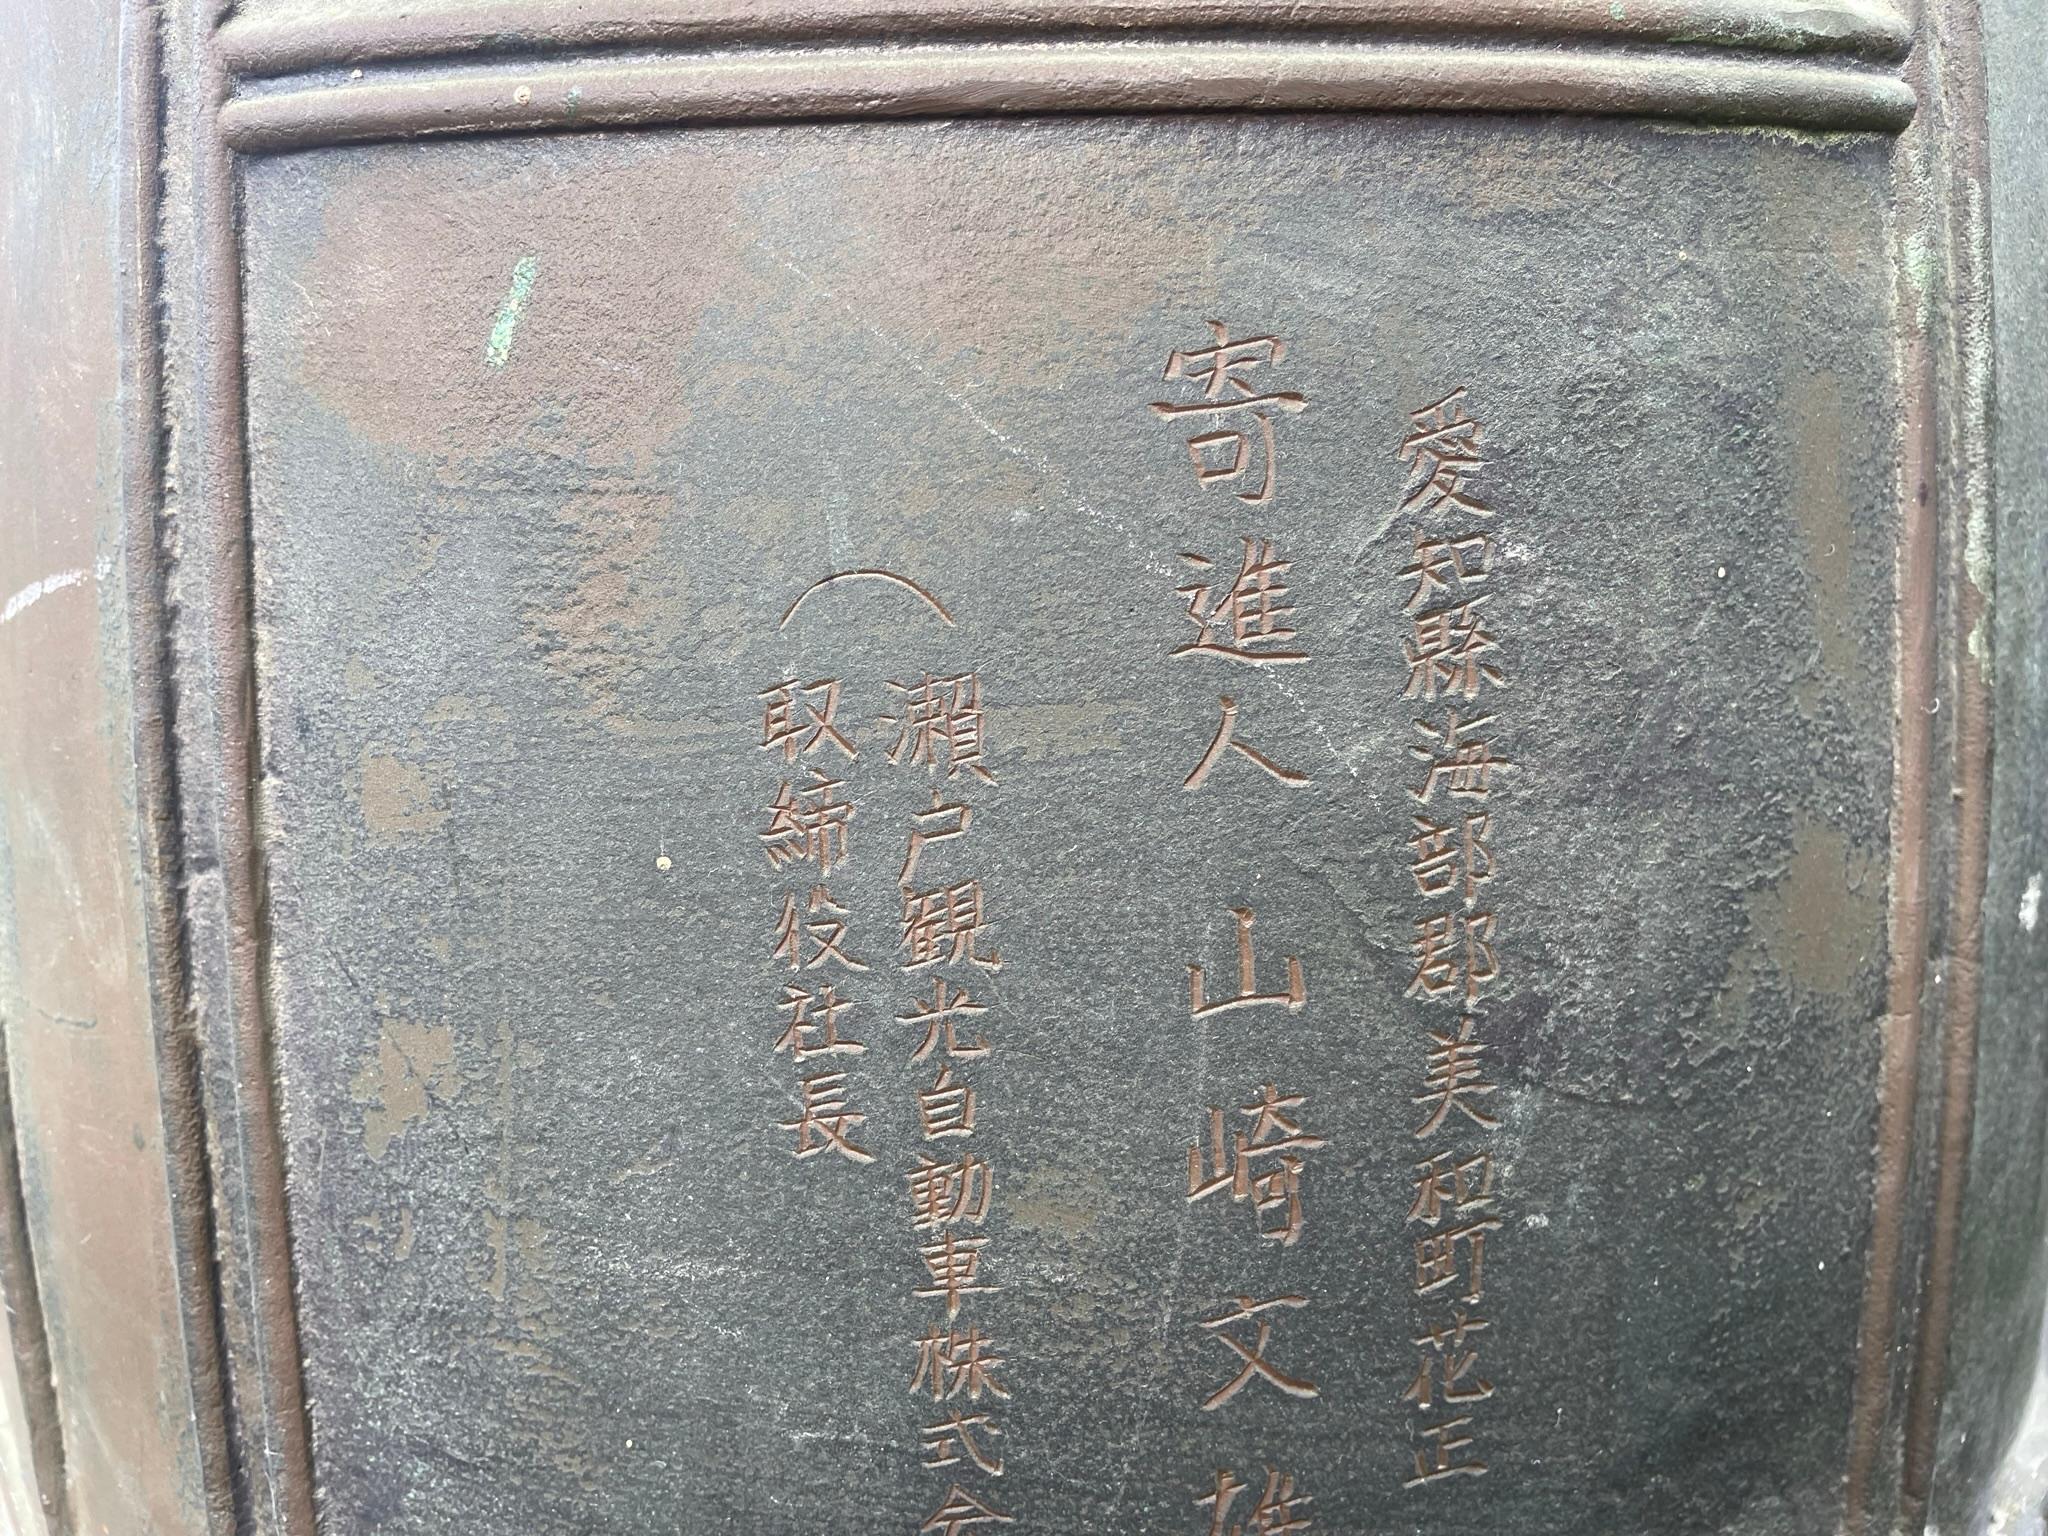 愛知縣海部郡美和町花正
寄進人 山崎文雄
(瀬户観光自動車株式会
取締役社長